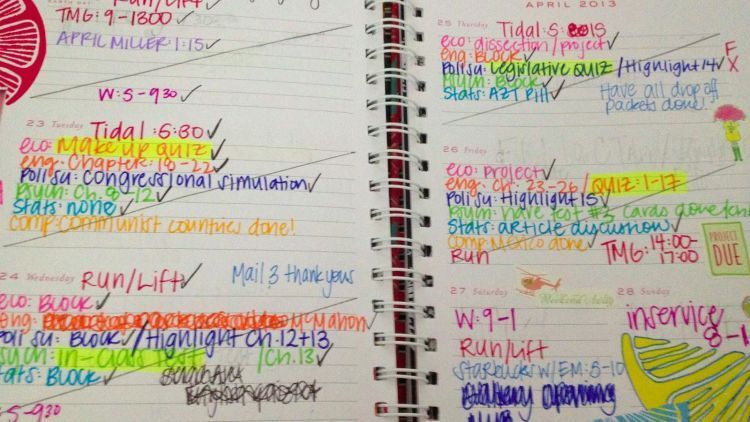 Run/Lift
TMG: 9-1300
APRIL MILLER 1:15
W: 5-930
23 Tuesday
Tidal: 6:30
eco: Make up quiz
eng: Chapter: 18-22
Poli su: congressional simulation
Psych: Ch. 8-12
Stats: none
comp: communist countries done!
24 Wednesday
Run/Lift
Mail 3 thankyous
eco: BLOCK
eng: McMahon
Poli su: BLOCK / Highlight Ch. 12+13
psych: in-class Test / Ch. 13
stats: BLOCK
5-930
APRIL 2013
25 Thursday
Tidal: 5:15
eco: dissection/project
eng: BLOCK
Poli su: Legislative QUIZ / Highlight 14
F
X
Psych: BLOCK
Stats: AZT Pill
Have all drop off
packets done!
26 Friday
eco: project
eng: Ch. 23-26 / QUIZ: 1-17
Poli su: Highlight 15
Psych: have test #3 cards done
Stats: article discussion
Comp: Mexico done
Run
TMG: 14:00-
17:00
PROJECT
DUE
27 Saturday
W: 9-1
Run/Lift
Starbucks W/EM: 8-10
28 Sunday
inservice
8-1